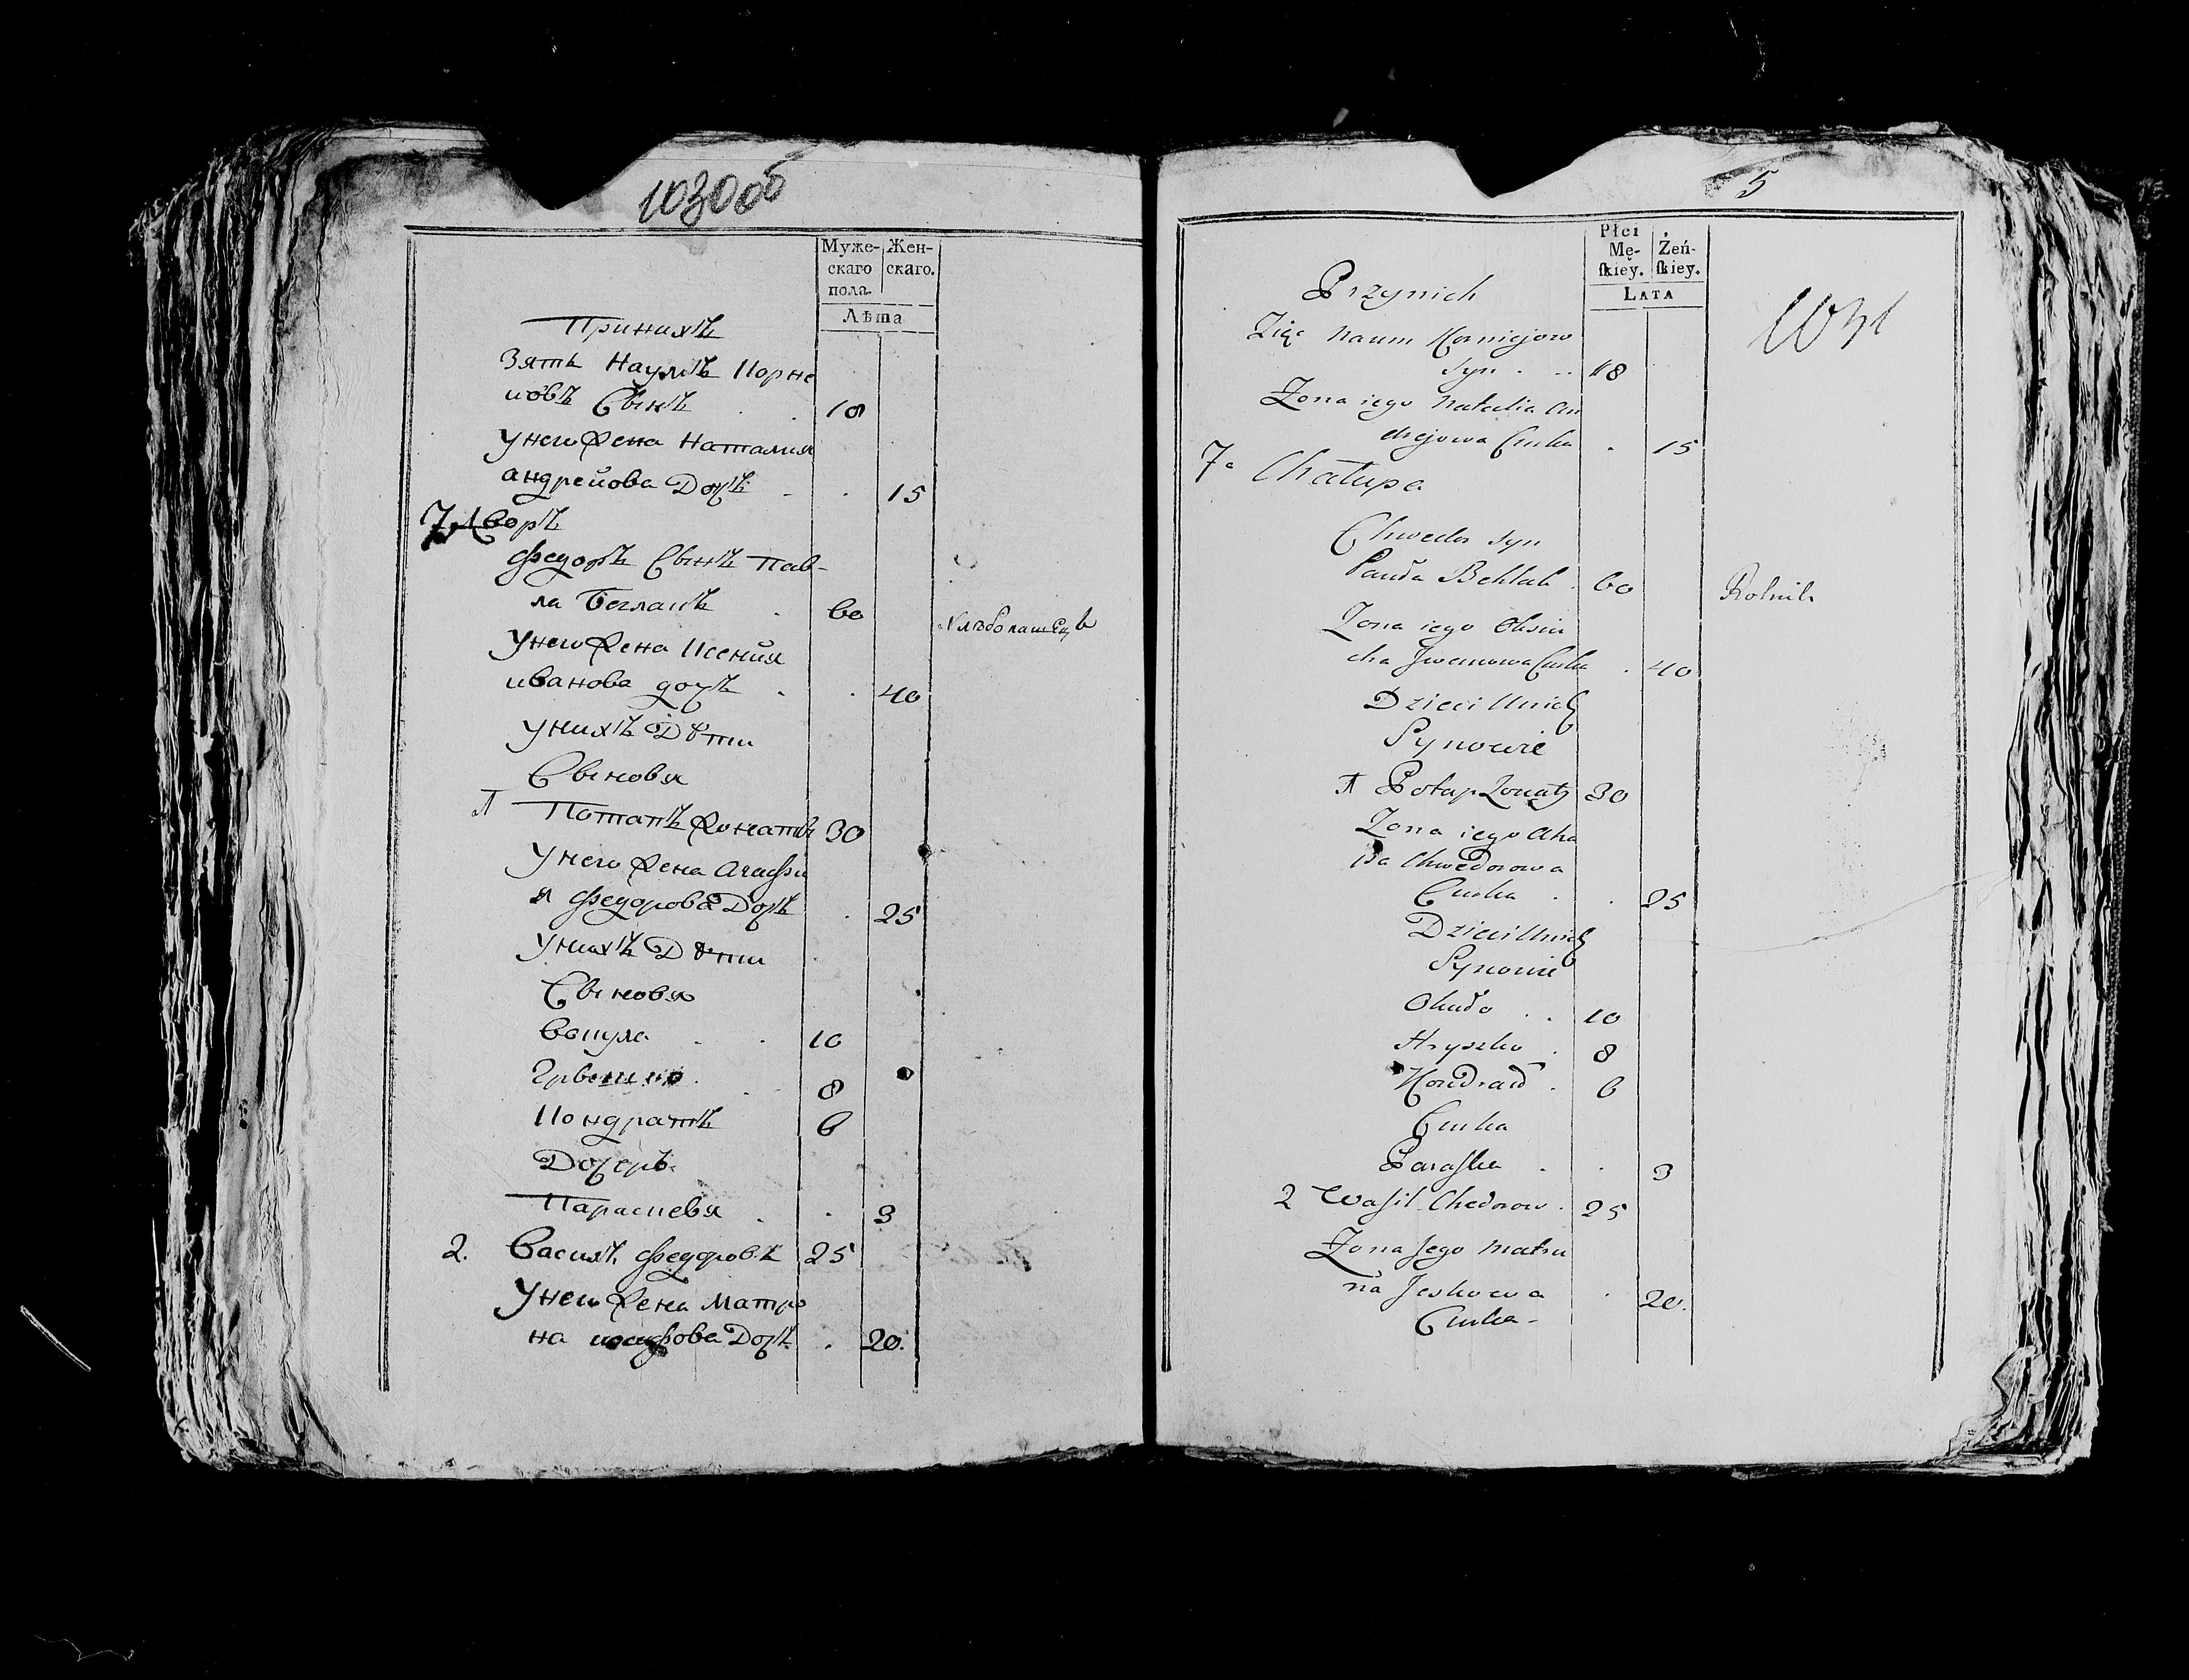 1030об
Муже- Жен-
скаго скаго.
пола
Лѣта
Принихъ
Зять Наумъ Корне
иовъ Сынъ . . 18
Унего жена Наталия
андреиова Дочь - . 15
7 Дворъ
Федоръ Сынъ Пав-
ла Беглакъ . 60 Хлѣбопашецъ
Унего жена Ксения
иванова дочь . . 40
Унихъ Дѣти
Сыновя
1 Потапъ жонатъ 30
Унего жена Агафи
я Федорова Дочь . 25
Унихъ Дѣти
Сыновя
Вакула . . 10
Грышко . . 8
Кондратъ 6
Дочерь
Параскевя . . 3
2. Василъ Федоровъ 25
Унего жена Матро
на иосифова Дочь . 20.
5
Płci
Mę- Żeń-
ſkiey. ſkiey.
LATA
1031
Przynich
Zięc Naum Korniejow
Syn . .. 18
Zona iego Natalia An
drejowa Curka . 15
7a Chałupa
Chwedor Syn
Pauła Behlak . 60 Rolnik
Zona iego Oksiu
cha Jwanowa Curka . 40
Dzieci Unich
Synowie
1 Potap Zonaty 30
Zona iego Aha
pa Chwedorowa
Curka . . 25
Dzieci Unich
Synowie
. . 10
Hryszko . 8
Kondrad . 6
Curka
Paraſka . . 3
2 Waſil Chedorow . 25
Zona Jego Matru
na Jeskowa . 20.
Curka -